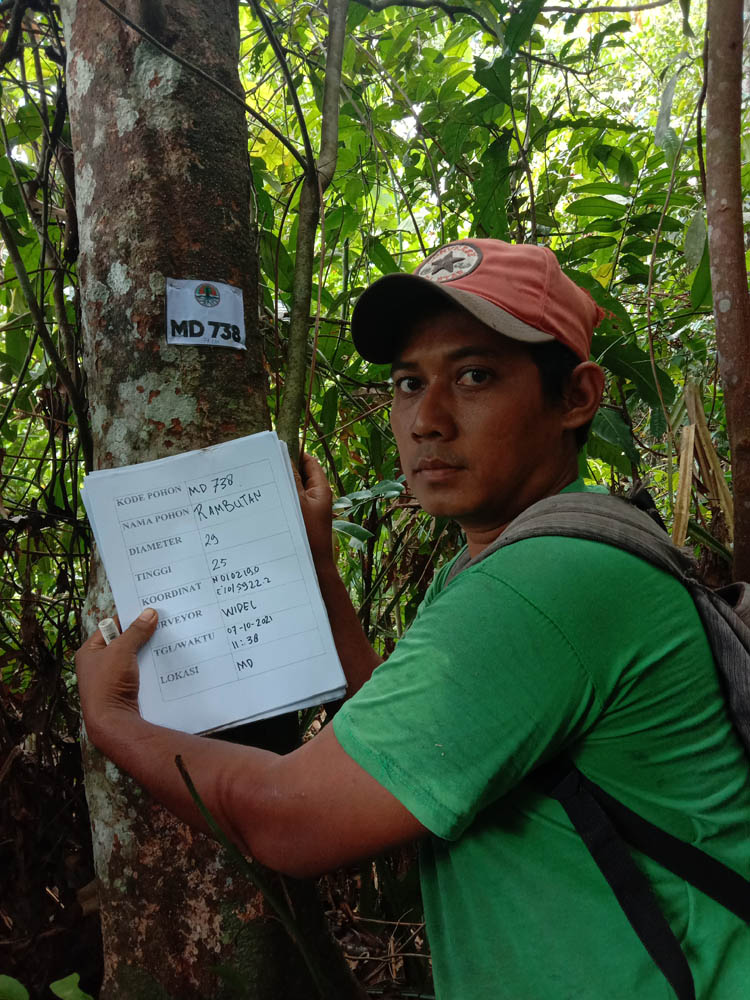 MD 738
KODE POHON MD 738
NAMA POHON RAMBUTAN
DIAMETER 29
TINGGI 25
KOORDINAT N 01 02 19,0
E 101 59 22.2
RVEYOR WIDEL
TGL/WAKTU 07-10-2021
11:38
LOKASI MD